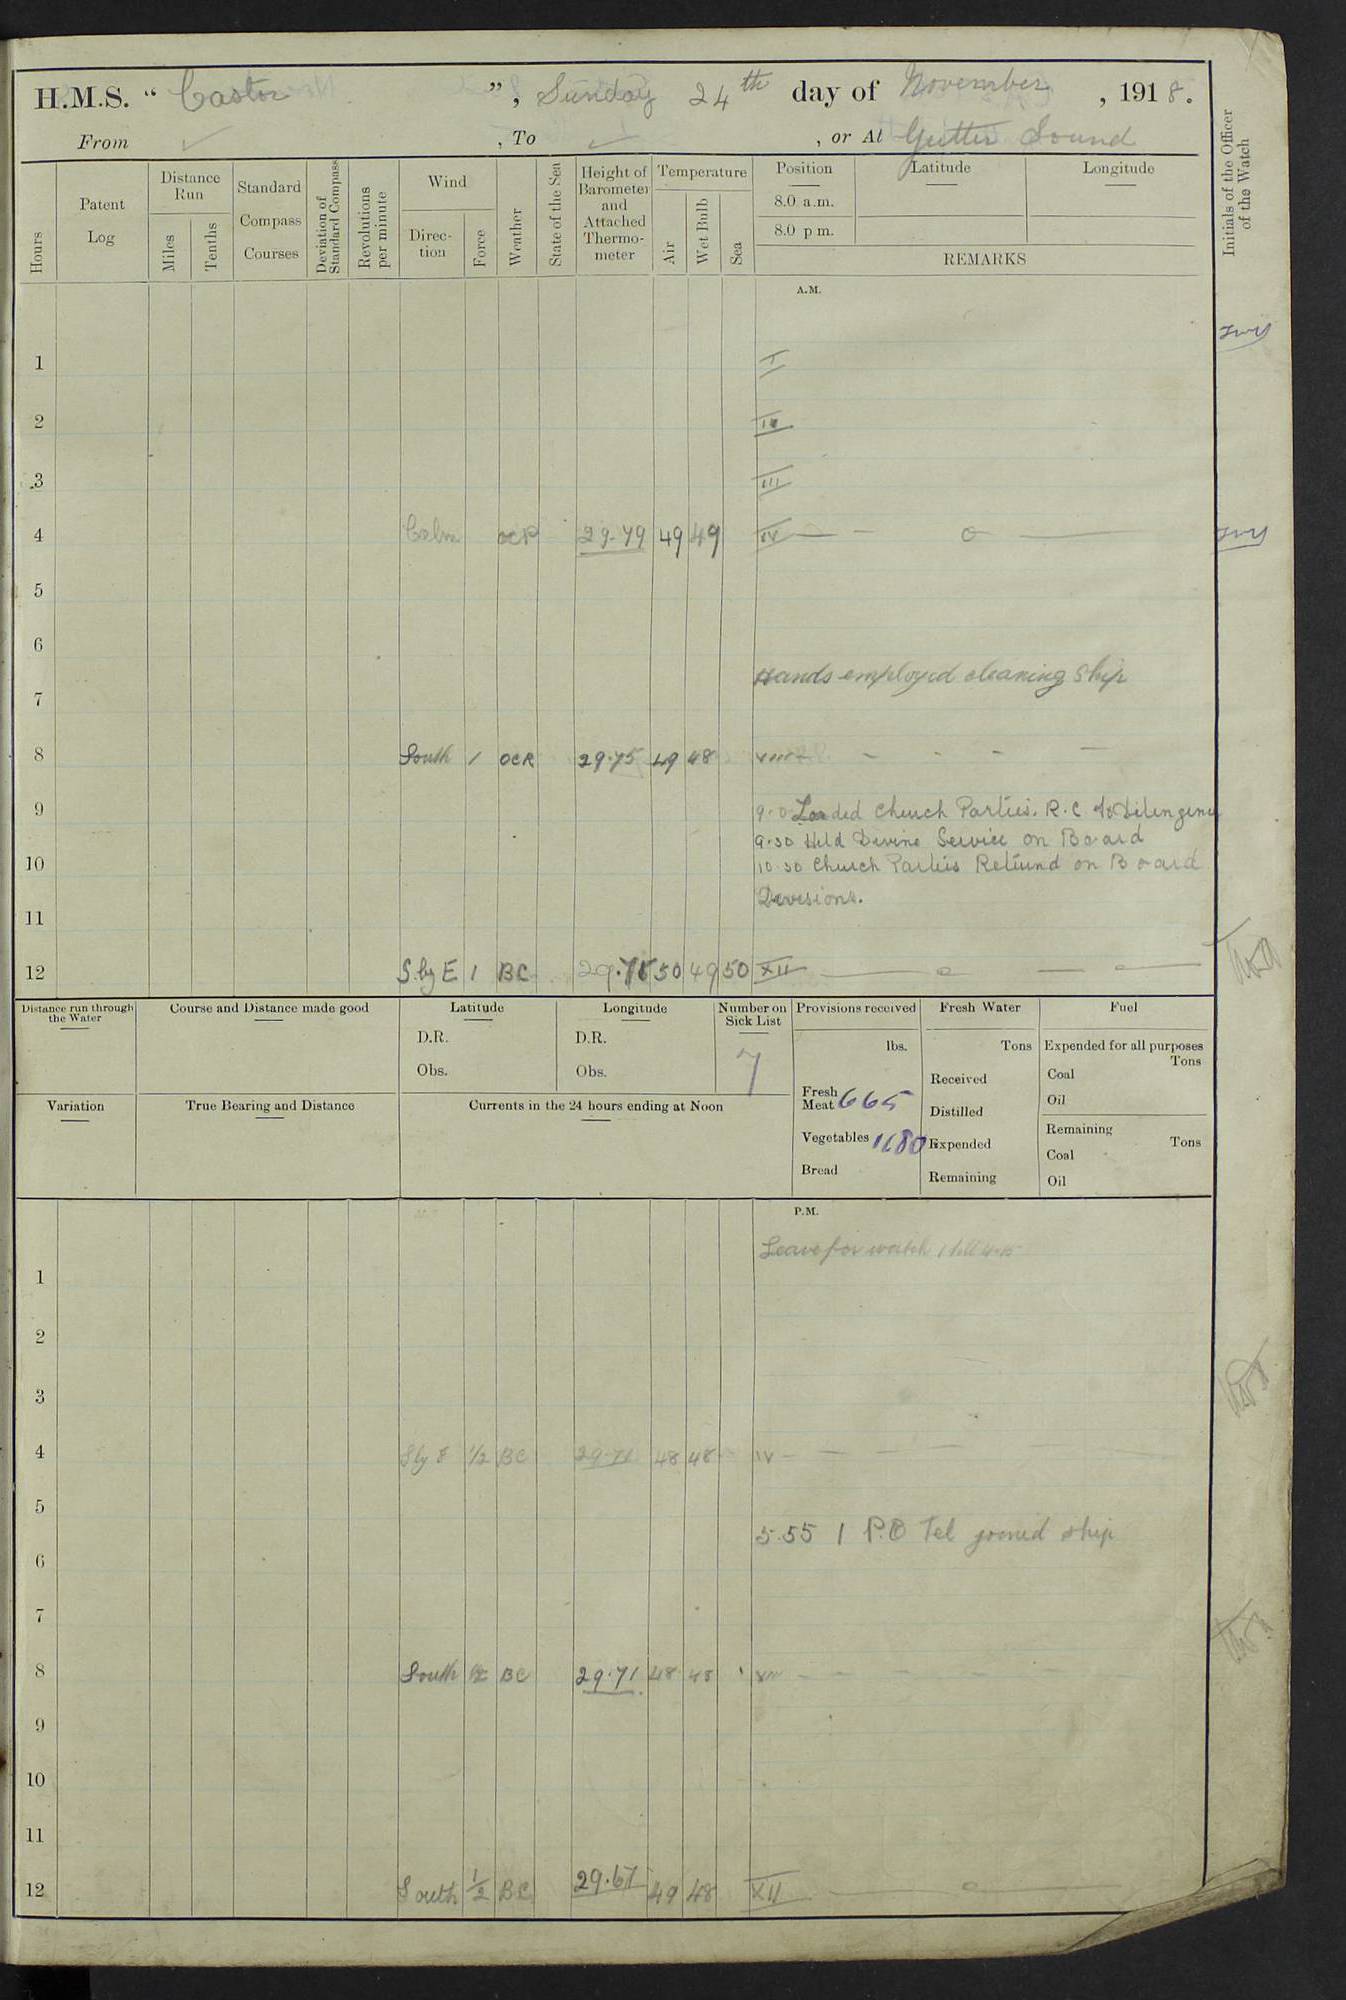 H.M.S. “ Castor ”, Sunday 24th day of November, 1918.
From ✓ , To ✓ , or At Gutter Sound
Hours
Patent Log
Distance Run
Miles
Tenths
Standard Compass Courses
Deviation of Standard Compass
Revolutions per minute
Wind
Direction
Force
Weather
State of the Sea
Height of Barometer and Attached Thermometer
Temperature
Air
Wet Bulb
Sea
Position
8.0 a.m.
8.0 p m.
Latitude
Longitude
REMARKS
Initials of the Officer of the Watch
A.M.
1 I
2 II
3 III
4 Calm OCP 29.79 49 49 IV — — o —
5
6
Hands employed cleaning Ship
7
8 South 1 OCR 29.75 49 48 VIII — - - - —
9 9.0 Landed Church Parties. R.C to
9.30 Held Devine Service on Board
10 10.30 Church Parties Returnd on Board
Devesions.
11
12 S.by E 1 BC 29.75 50 49 50 XII — o — o —
Distance run through the Water
Course and Distance made good
Latitude
D.R.
Obs.
Longitude
D.R.
Obs.
Number on Sick List
7
Provisions received
lbs.
Fresh Meat 665
Vegetables 1680
Bread
Fresh Water
Tons
Received
Distilled
Expended
Remaining
Fuel
Expended for all purposes
Tons
Coal
Oil
Remaining
Tons
Coal
Oil
Variation
True Bearing and Distance
Currents in the 24 hours ending at Noon
P.M.
Leave for watch 1 till 4.15
1
2
3
4 Sby E 1/2 BC 29.71 48 48 IV — — — —
5
5.55 1 P.O Tel joined ship
6
7
8 South 1/2 BC 29.71 48 48 VIII - - - - -
9
10
11
12 South 1/2 BC 29.67 49 48 XII — o —